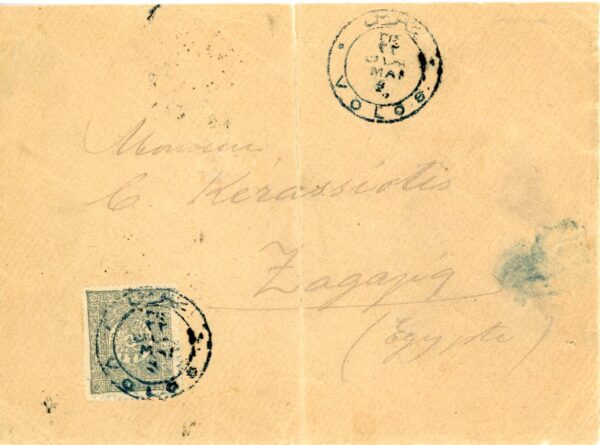 MAI
VOLOS
Monsieur
C. Kerassiotis
Zagazig
(Egypte)
VOLOS